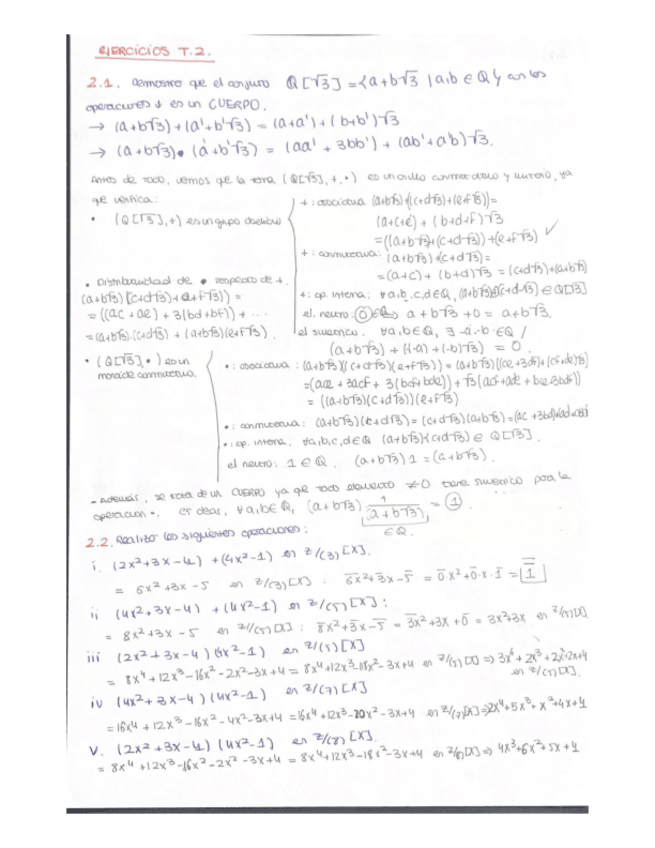 EJERCICIOS T.2.
2.1. Demostrar que el conjunto Q[√3] = {a+b√3 | a,b ∈ Q} con las
operaciones ↓ es un CUERPO.
→ (a+b√3)+(a'+b'√3) = (a+a')+(b+b')√3
→ (a+b√3)•(a'+b'√3) = (aa' + 3bb') + (ab'+a'b)√3.
Antes de todo, vemos que la terna (Q[√3], +, •) es un anillo conmutativo y unitario, ya
que verifica:
• (Q[√3],+) es un grupo abeliano
+: asociativa (a+b√3)+((c+d√3)+(e+f√3))=
(a+c+e) + (b+d+f)√3
=((a+b√3)+(c+d√3))+(e+f√3) ✓
+: conmutativa: (a+b√3)+(c+d√3)=
=(a+c)+(b+d)√3 = (c+d√3)+(a+b√3)
+: op. interna: ∀a,b,c,d∈Q,
el. neutro: a+b√3+0 = a+b√3.
el simétrico. ∀a,b∈Q, ∃ -a,-b ∈Q /
(a+b√3) + ((-a)+(-b)√3) = 0.
• Distributividad de • respecto de +.
(a+b√3)[(c+d√3)+(e+f√3)] =
= ((ac+ae) + 3(bd+bf)) + ...
=(a+b√3)(c+d√3) + (a+b√3)(e+f√3)
• (Q[√3],•) es un
monoide conmutativo.
•: asociativa: (a+b√3)((c+d√3)(e+f√3)) = (a+b√3)((ce+3df)+(cf+de)√3)
= ((a+b√3)(c+d√3))(e+f√3)
•: conmutativa: (a+b√3)(c+d√3) = (c+d√3)(a+b√3)
•: op. interna. ∀a,b,c,d∈Q (a+b√3)(c+d√3) ∈ Q[√3].
el neutro: 1 ∈ Q. (a+b√3) 1 = (a+b√3).
- Además, se trata de un CUERPO ya que todo elemento ≠0 tiene simétrico para la
operación •. Es decir, ∀a,b∈Q, (a+b√3) 1/(a+b√3) = 1
∈ Q.
2.2. Realizar las siguientes operaciones:
i. (2x²+3x-4) + (4x²-1) en Z/(3)[X].
= 6x²+3x-5 en Z/(3)[X] : 6x²+3x-5 = 0·x²+0·x·1 = 1
ii (4x²+3x-4) + (4x²-1) en Z/(5)[X]:
= 8x²+3x-5 en Z/(5)[X] : 8x²+3x-5 = 3x²+3x+0 = 3x²+3x en Z/(5)[X]
iii (2x²+3x-4)(4x²-1) en Z/(5)[X]
= 8x⁴+12x³-16x²-2x²-3x+4 = 8x⁴+12x³-18x²-3x+4 en Z/(5)[X] ⇒
en Z/(5)[X].
iv (4x²+3x-4)(4x²-1) en Z/(7)[X]
=16x⁴+12x³-16x²-4x²-3x+4 =16x⁴+12x³-20x²-3x+4 en Z/(7)[X] ⇒ 2x⁴+5x³+x²+4x+4
v. (2x²+3x-4)(4x²-1) en Z/(8)[X].
= 8x⁴+12x³-16x²-2x²-3x+4 = 8x⁴+12x³-18x²-3x+4 en Z/(8)[X] ⇒ 4x³+6x²+5x+4